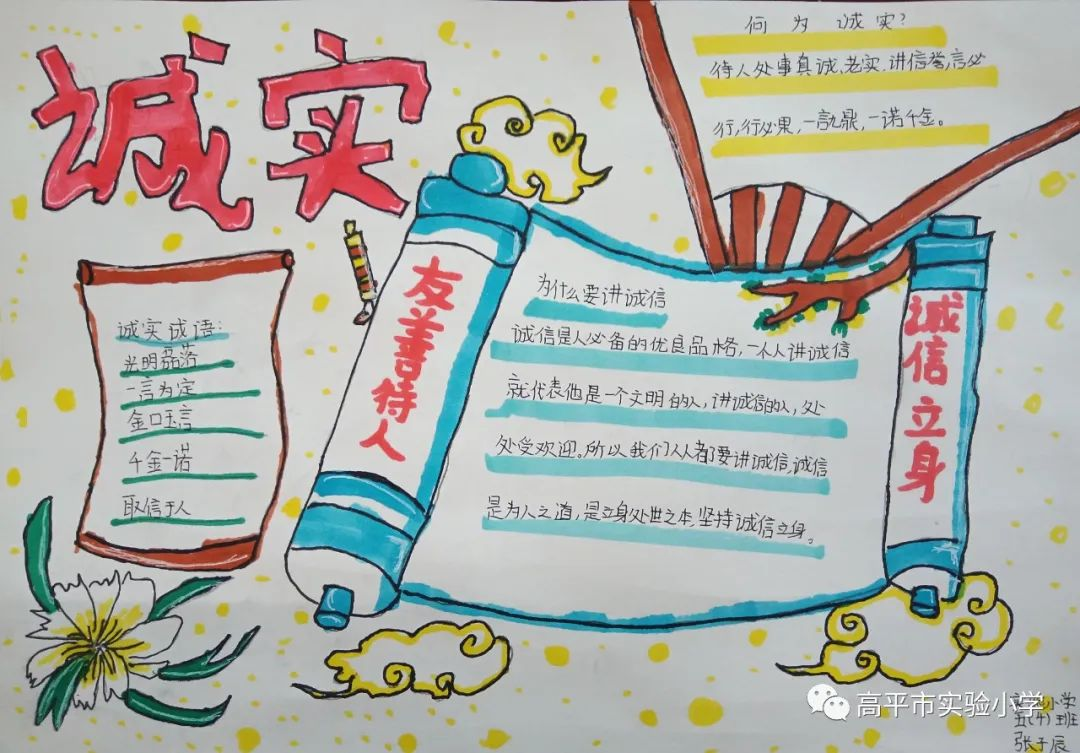 诚实
何为诚实?
待人处事真诚,老实,讲信誉,言必
行,行必果,一言九鼎,一诺千金。
诚实成语:
光明磊落
一言为定
金口玉言
千金一诺
取信于人
友善待人
为什么要讲诚信
诚信是人必备的优良品格,一个人讲诚信
就代表他是一个文明的人,讲诚信的人,处
处受欢迎。所以我们人人都要讲诚信,诚信
是为人之道,是立身处世之本,坚持诚信立身。
诚信立身
高平市实验小学
实验小学
五(4)班
张子辰